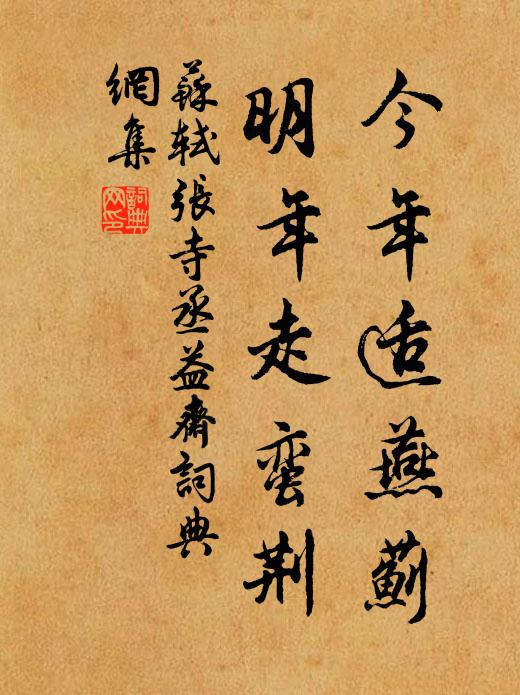 今年适燕薊
明年走蛮荆
蘇軾張寺丞益齋詞典
網集
詞典
网印